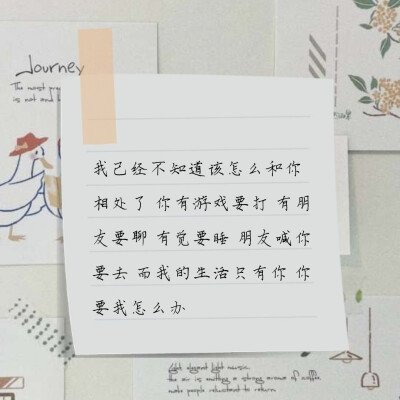 Journey
The most pre
is not and h
我已经不知道该怎么和你
相处了 你有游戏要打 有朋
友要聊 有觉要睡 朋友喊你
要去 而我的生活只有你 你
要我怎么办
light elegant light music
the air is emitting a strong aroma of coffee
make people reluctant to return